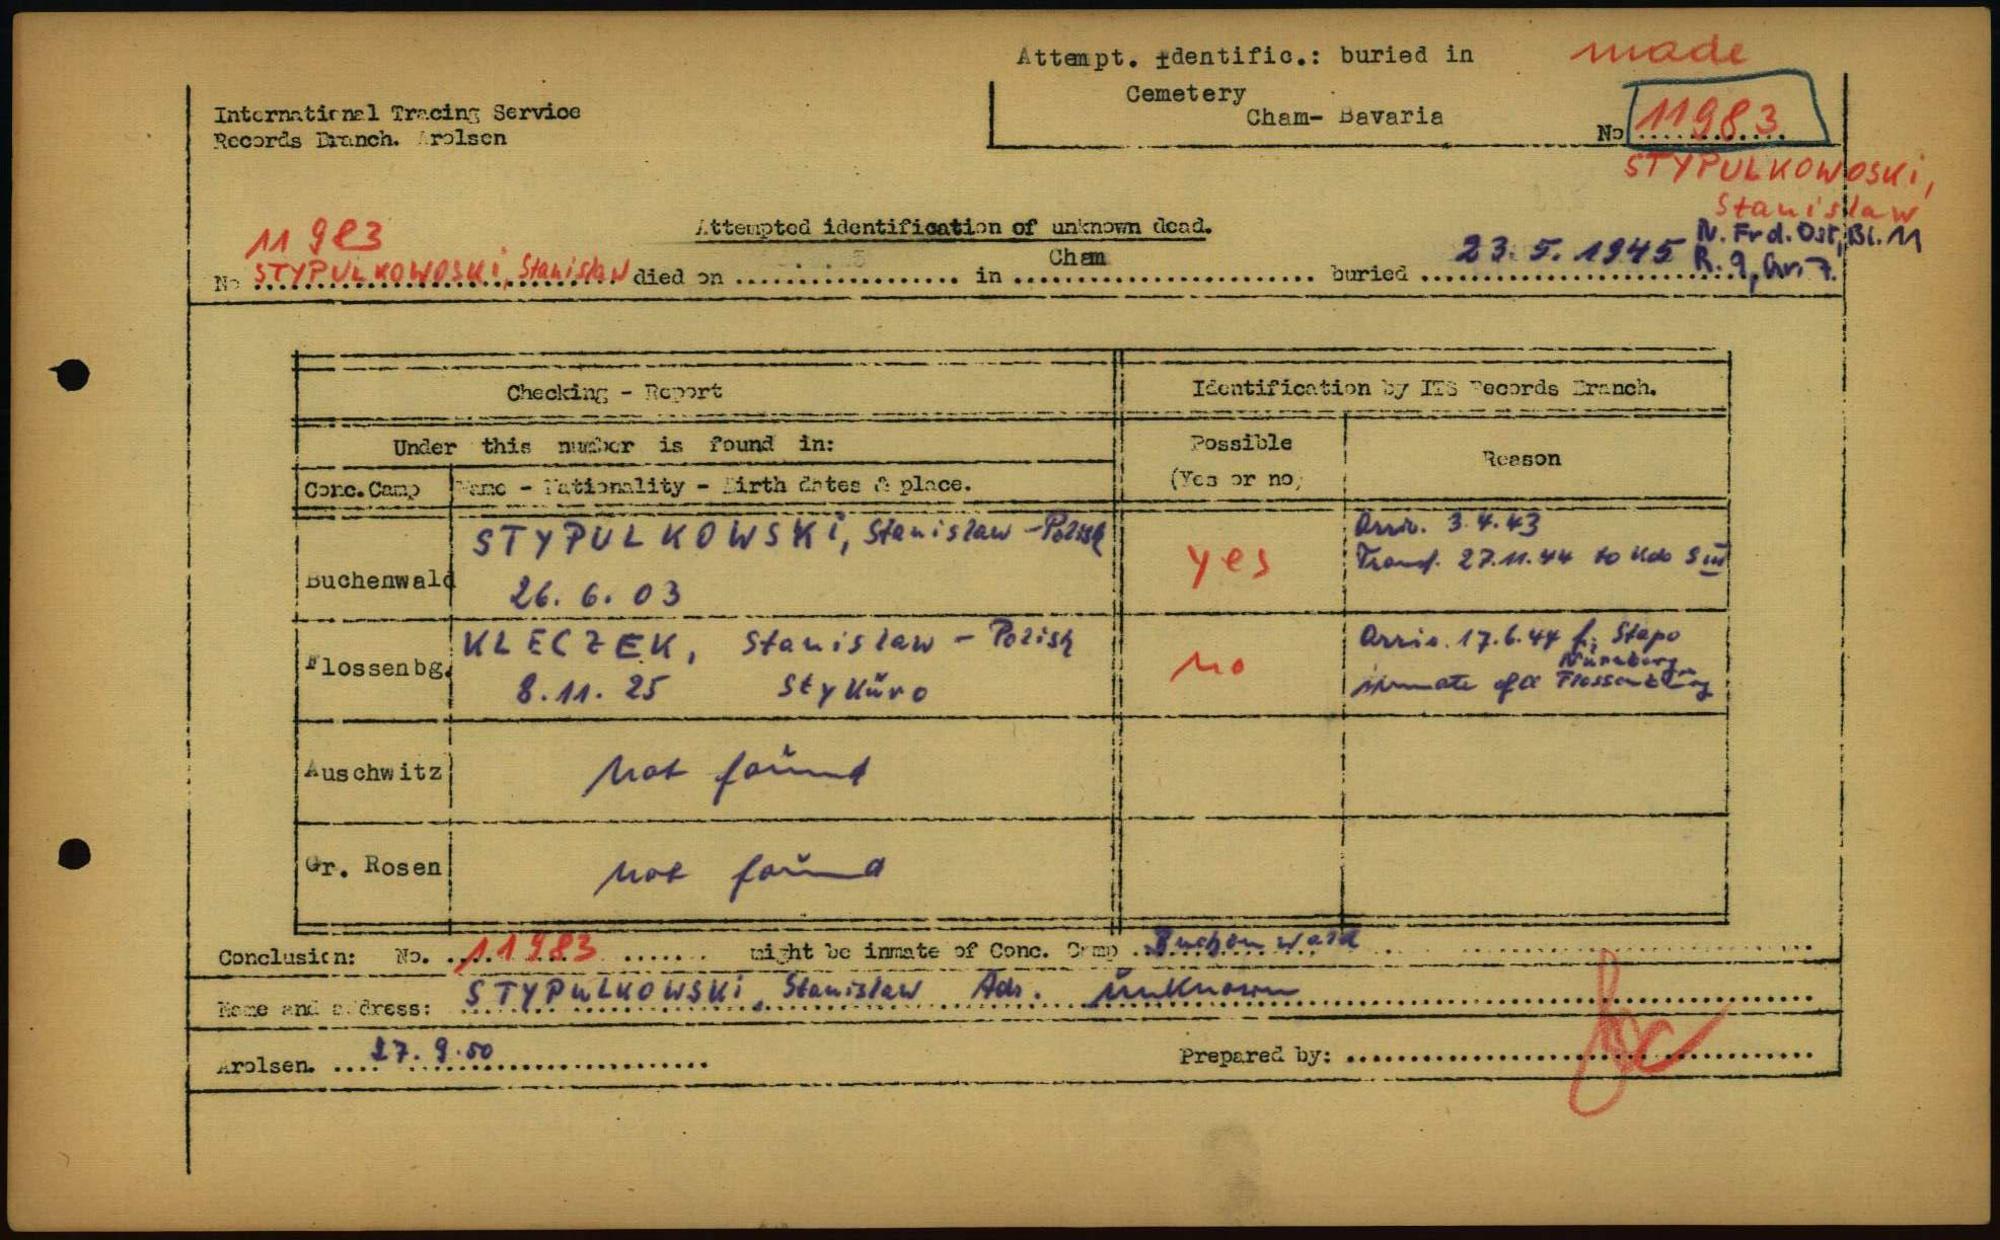 Attempt. identific.: buried in made
Cemetery
Cham- Bavaria
No 11983
International Tracing Service
Records Branch. Arolsen
STYPULKOWOSKi,
Stanislaw
N. Frd. Ost, Bl. 11
R. 9, Gr. 7.
Attempted identification of unknown dead.
11983
No STYPULKOWOSKi, Stanislaw died on ........ in Cham ........ buried 23. 5. 1945
Checking - Report
Identification by ITS Records Branch.
Under this number is found in:
Possible
(Yes or no)
Reason
Conc. Camp
Name - Nationality - Birth dates & place.
Buchenwald
STYPULKOWSKi, Stanislaw - Polish
26. 6. 03
yes
Arriv. 3.4.43
Transf. 27.11.44 to Kdo S III
Flossenbg.
KLECZEK, Stanislaw - Polish
8. 11. 25 Stykŭro
no
Arriv. 17.6.44 f. Stapo
Nürnberg
inmate of CC Flossenbürg
Auschwitz
not found
Gr. Rosen
not found
Conclusion: No. 11983 ....... might be inmate of Conc. Camp Buchenwald
Name and address: STYPULKOWSKi, Stanislaw Adr. unknown
Arolsen. .... 27. 9. 50
Prepared by: ........